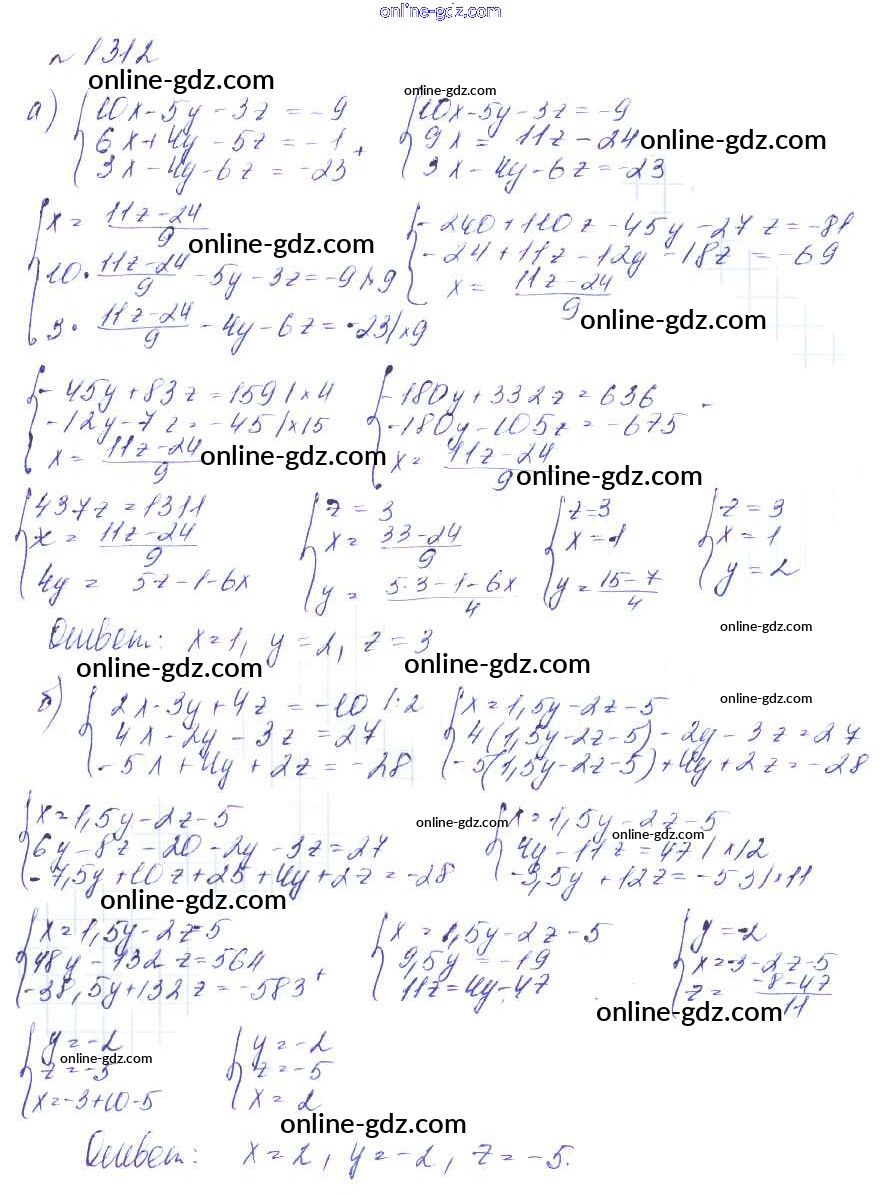 online-gdz.com
№ 1312
online-gdz.com
а) { 10x - 5y - 3z = -9
6x + 4y - 5z = -1
3x - 4y - 6z = -23 +
online-gdz.com
{ 10x - 5y - 3z = -9
9x = 11z - 24
3x - 4y - 6z = -23
online-gdz.com
{ x = (11z - 24)/9
10 · (11z - 24)/9 - 5y - 3z = -9 | ×9
3 · (11z - 24)/9 - 4y - 6z = -23 | ×9
online-gdz.com
{ -240 + 110z - 45y - 27z = -81
-24 + 11z - 12y - 18z = -69
x = (11z - 24)/9
online-gdz.com
{ -45y + 83z = 159 | ×4
-12y - 7z = -45 | ×15
x = (11z - 24)/9
online-gdz.com
{ -180y + 332z = 636
-180y - 105z = -675 -
x = (11z - 24)/9
online-gdz.com
{ 437z = 1311
x = (11z - 24)/9
4y = 5z - 1 - 6x
{ z = 3
x = (33 - 24)/9
y = (5·3 - 1 - 6x)/4
{ z = 3
x = 1
y = (15 - 7)/4
{ z = 3
x = 1
y = 2
Ответ: x = 1, y = 2, z = 3
online-gdz.com
online-gdz.com
online-gdz.com
б) { 2x - 3y + 4z = -10 | :2
4x - 2y - 3z = 27
-5x + 4y + 2z = -28
online-gdz.com
{ x = 1,5y - 2z - 5
4(1,5y - 2z - 5) - 2y - 3z = 27
-5(1,5y - 2z - 5) + 4y + 2z = -28
{ x = 1,5y - 2z - 5
6y - 8z - 20 - 2y - 3z = 27
-7,5y + 10z + 25 + 4y + 2z = -28
online-gdz.com
online-gdz.com
{ x = 1,5y - 2z - 5
4y - 11z = 47 | ×12
-3,5y + 12z = -53 | ×11
online-gdz.com
{ x = 1,5y - 2z - 5
48y - 132z = 564
-38,5y + 132z = -583 +
{ x = 1,5y - 2z - 5
9,5y = -19
11z = 4y - 47
{ y = -2
x = -3 - 2z - 5
z = (-8 - 47)/11
online-gdz.com
{ y = -2
z = -5
x = -3 + 10 - 5
online-gdz.com
{ y = -2
z = -5
x = 2
online-gdz.com
Ответ: x = 2, y = -2, z = -5.